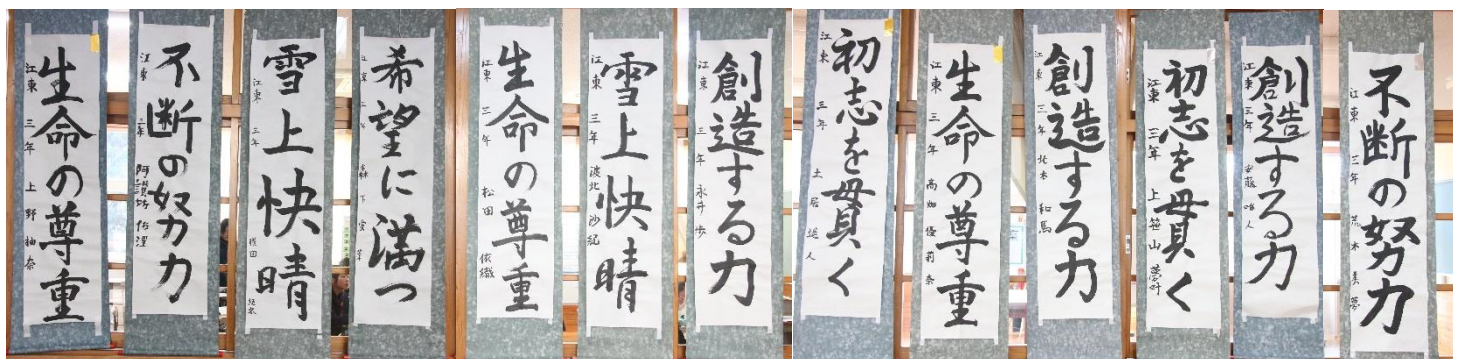 生命の尊重
江東 三年 上野柚奈
不断の努力
江東 三年 阿讃坊
雪上快晴
江東 三年 横田
希望に満つ
江東 三年 森下
生命の尊重
江東 三年 松田依織
雪上快晴
江東 三年 波北沙紀
創造する力
江東 三年 永井歩
初志を貫く
江東 三年 土居 人
生命の尊重
江東 三年 高畑優莉奈
創造する力
江東 三年 北本和馬
初志を貫く
江東 三年 上笹山夢叶
創造する力
江東 三年 安藤唯人
不断の努力
江東 三年 荒木 夢